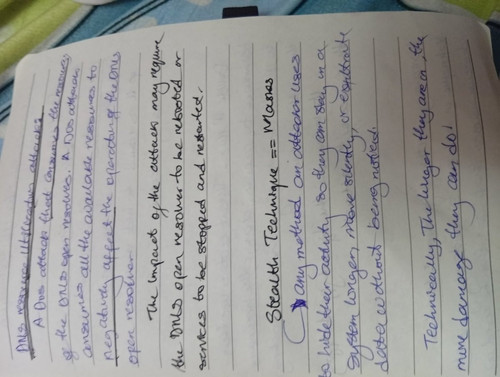 DNS resource utilization attacks:
A DoS attack that consumes the resources
of the DNS open resolvers. A DoS attack
consumes all the available resources to
negatively affect the operations of the DNS
open resolver.
The impact of the attack may require
the DNS open resolver to be rebooted or
services to be stopped and restarted.
Stealth Technique == Masks
any method an attacker uses
to hide their activity so they can stay in a
system longer, move silently, or exfiltrate
data without being noticed.
Technically, The longer they are in, the
more damage they can do!